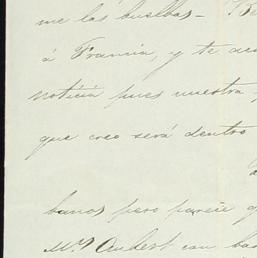 me las buelbas - Be
á Francia, y te
noticia pues nuestra
que creo será dentro
banos pero parece q
Mr. Aubert con bas